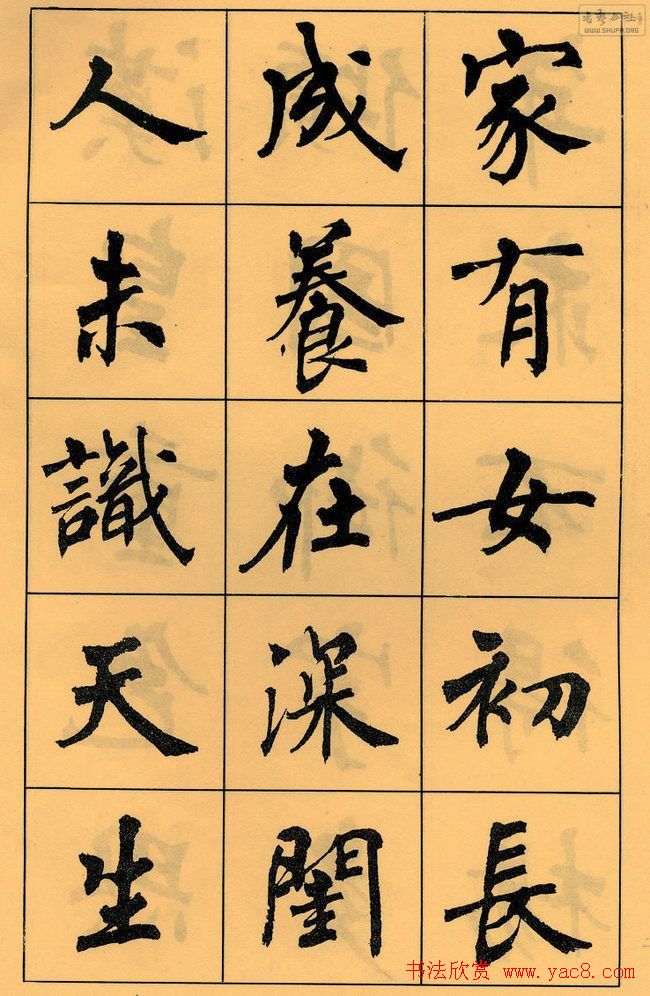 家有女初長
成養在深閨
人未識天生
WWW.SHUFA.ORG
书法欣赏 www.yac8.com